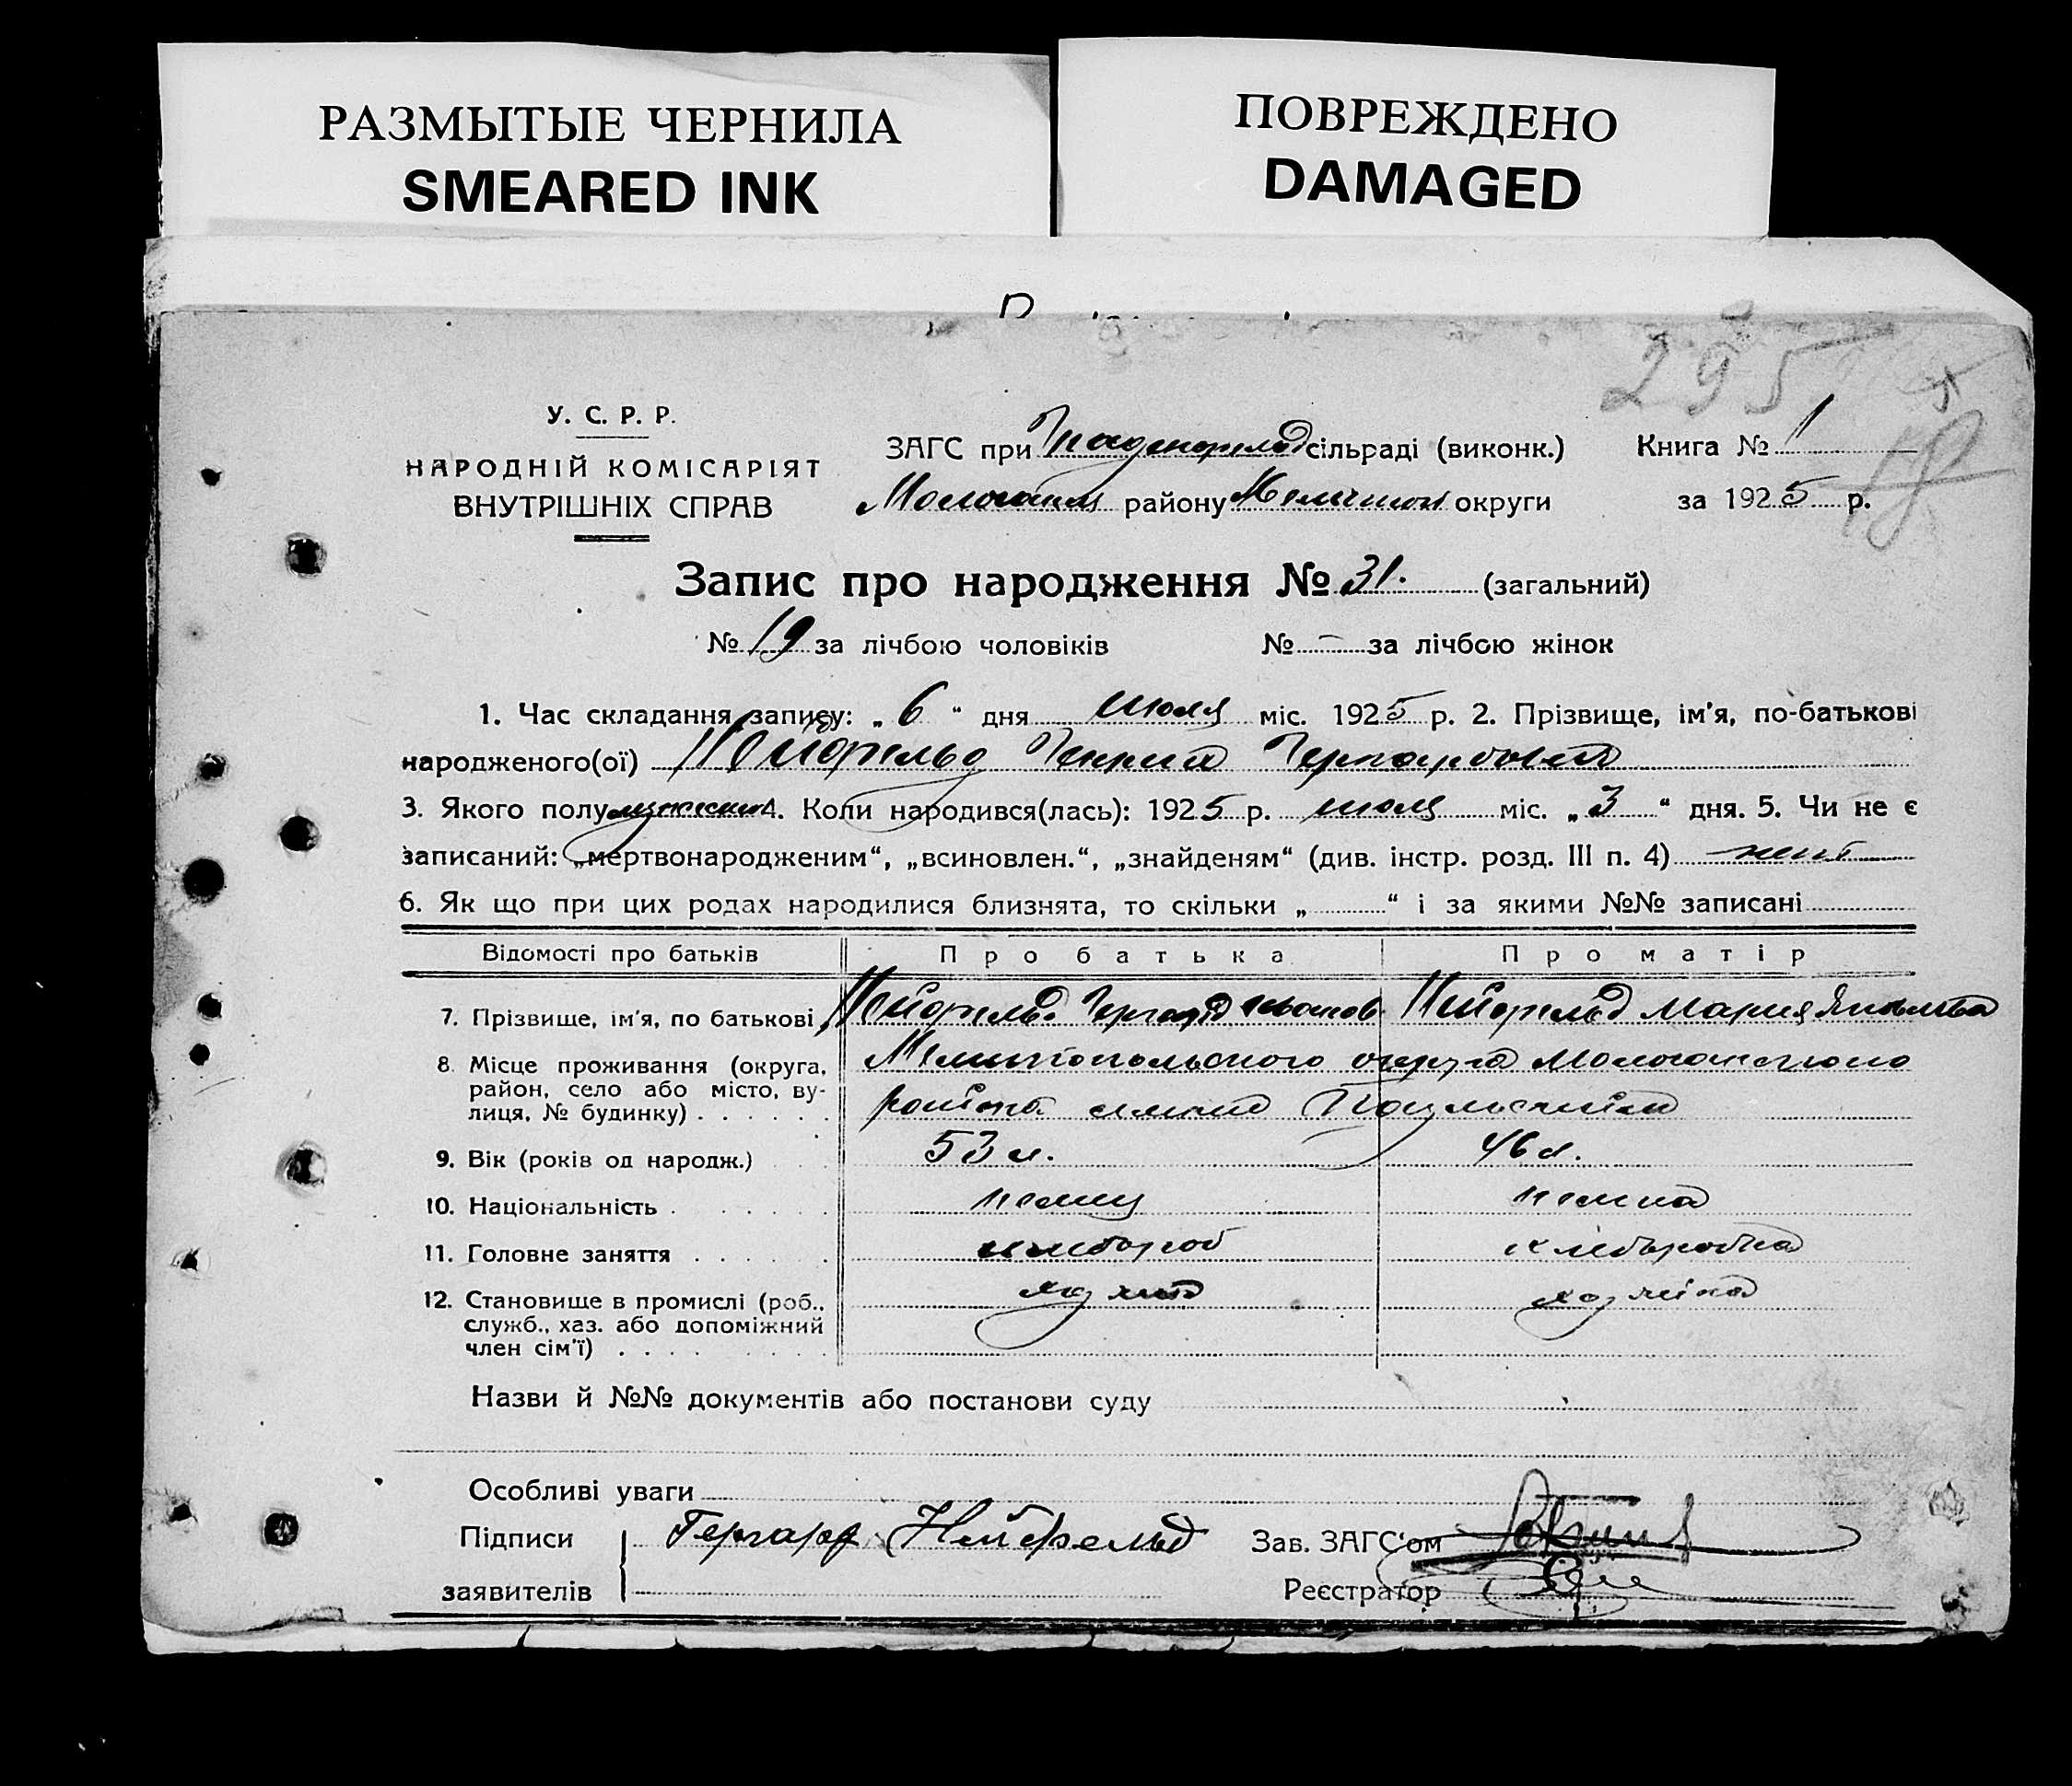 РАЗМЫТЫЕ ЧЕРНИЛА
SMEARED INK
ПОВРЕЖДЕНО
DAMAGED
295
У. С. Р. Р.
НАРОДНІЙ КОМІСАРІЯТ
ВНУТРІШНІХ СПРАВ
ЗАГС при сільраді (виконк.) Книга № 1
району округи за 1925 р.
Запис про народження № 31. (загальний)
№ 19 за лічбою чоловіків № – за лічбою жінок
1. Час складання запису: „ 6 “ дня июля міс. 1925 р. 2. Прізвище, ім'я, по-батькові
народженого(ої) Нейфельд Генрих Гергардович
3. Якого полу 4. Коли народився(лась): 1925 р. июля міс. „ 3 “ дня. 5. Чи не є
записаний: „мертвонародженим“, „всиновлен.“, „знайденям“ (див. інстр. розд. III п. 4) нет
6. Як що при цих родах народилися близнята, то скільки „ “ і за якими №№ записані
Відомості про батьків Про батька Про матір
7. Прізвище, ім'я, по батькові Нейфельд Гергард Иванов. Нейфельд Мария Яковлевна
8. Місце проживання (округа, Мелитопольского округа Молочанского
район, село або місто, ву-
лиця, № будинку) района
9. Вік (років од народж.) 53 л. 46 л.
10. Національність немец немка
11. Головне заняття хлебороб хлеборобка
12. Становище в промислі (роб.,
служб., хаз. або допоміжний
член сім'ї)
Назви й №№ документів або постанови суду
Особливі уваги
Підписи Гергард Нейфельд Зав. ЗАГС'ом
заявителів Реєстратор